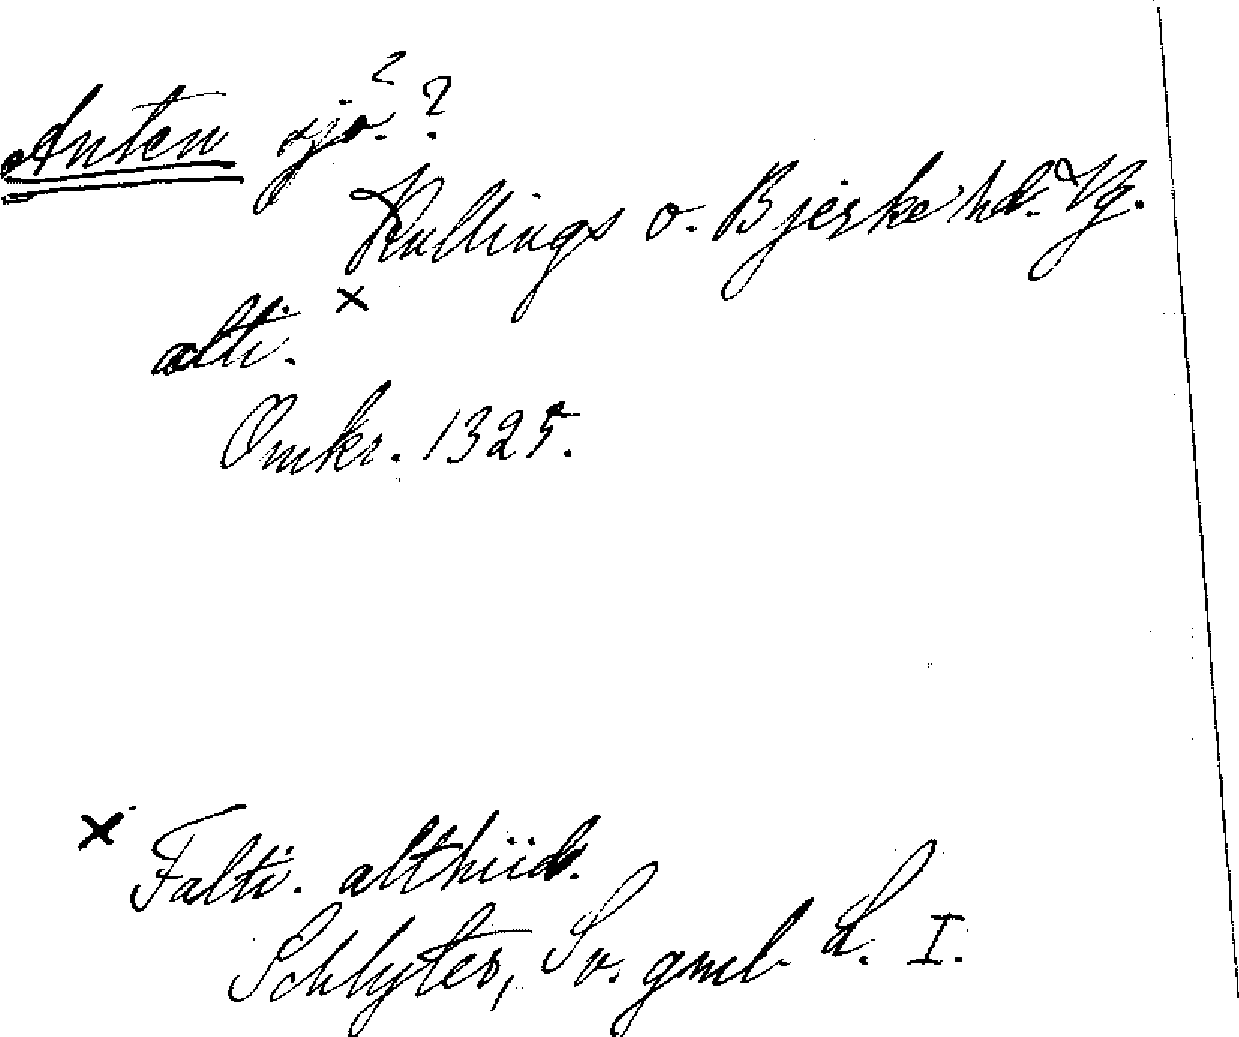 Anten sjö? ?
Kullings o. Bjerke hd. Vg.
alti. ×
Omkr. 1325.
× Falti. althiid.
Schlyter, Sv. gml. L. I.